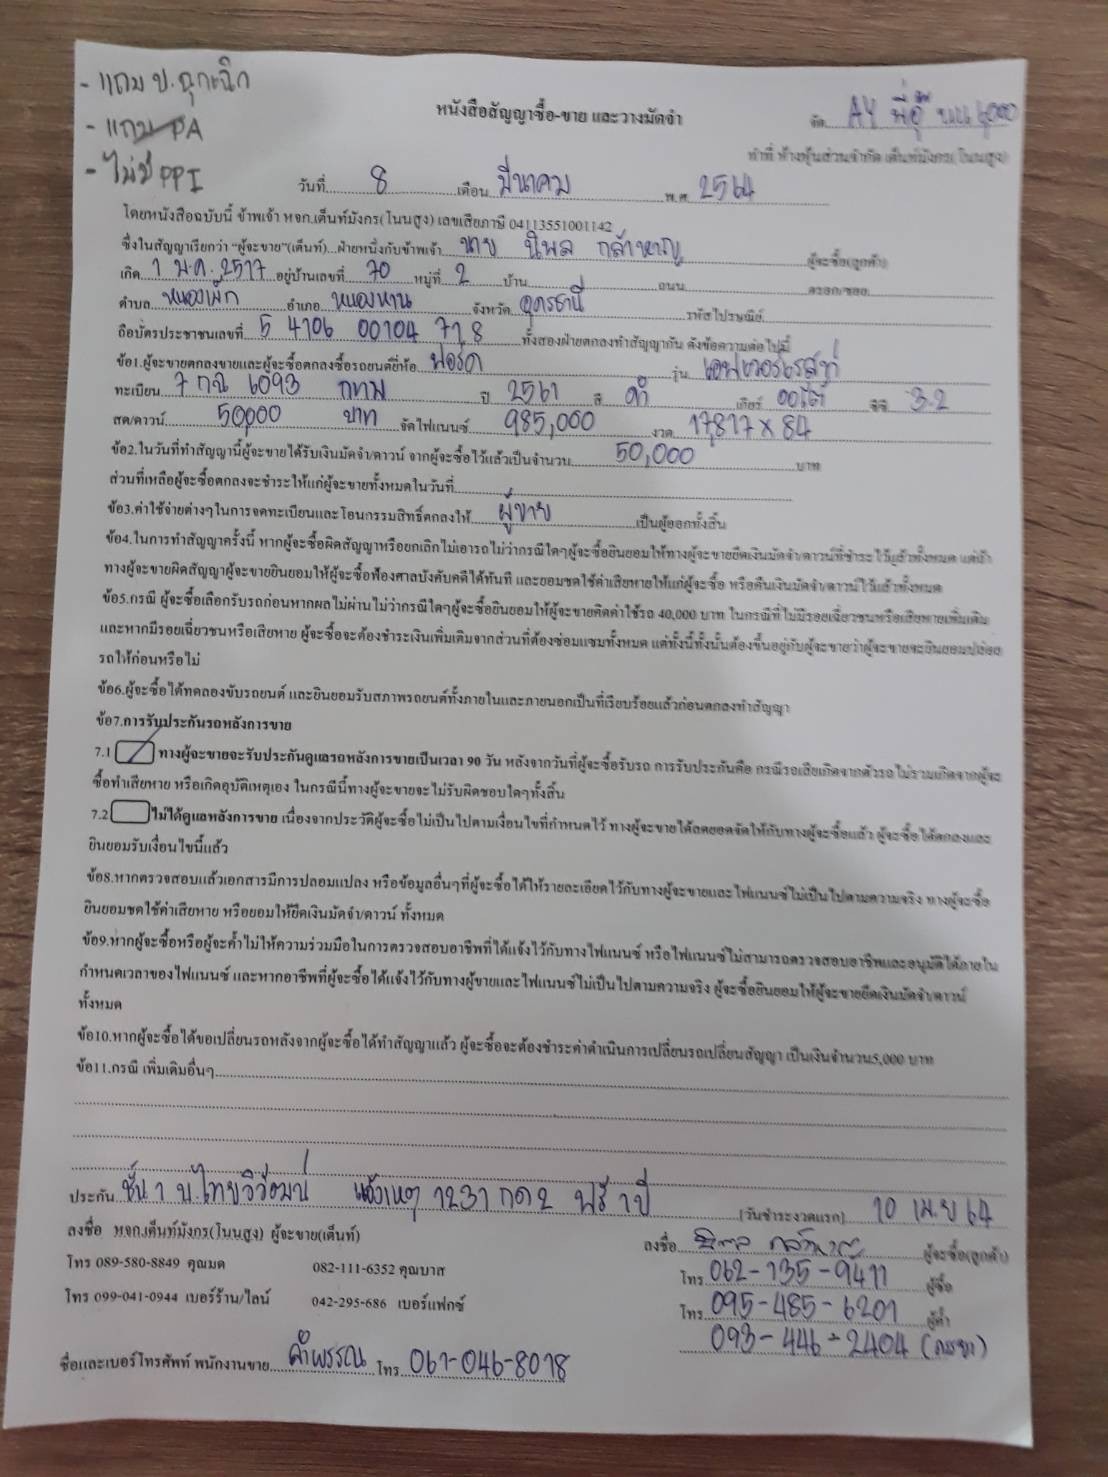 - แถม ป. ฉุกเฉิน
- แถม PA
- ไม่มี PPI
หนังสือสัญญาซื้อ-ขาย และวางมัดจำ
จัด AY
ทำที่ ห้างหุ้นส่วนจำกัด เต็นท์มังกร(โนนสูง)
วันที่ 8 เดือน มีนาคม พ.ศ. 2564
โดยหนังสือฉบับนี้ ข้าพเจ้า หจก.เต็นท์มังกร(โนนสูง) เลขเสียภาษี 04113551001142
ซึ่งในสัญญาเรียกว่า "ผู้จะขาย"(เต็นท์)...ฝ่ายหนึ่งกับข้าพเจ้า นาย นิพล กล้าหาญ ผู้จะซื้อ(ลูกค้า)
เกิด 1 ม.ค. 2517 อยู่บ้านเลขที่ 70 หมู่ที่ 2 บ้าน ถนน ตรอก/ซอย
ตำบล หนองเม็ก อำเภอ หนองหาน จังหวัด อุดรธานี รหัสไปรษณีย์
ถือบัตรประชาชนเลขที่ 5 4106 00104 71 8 ทั้งสองฝ่ายตกลงทำสัญญากัน ดังข้อความต่อไปนี้
ข้อ1.ผู้จะขายตกลงขายและผู้จะซื้อตกลงซื้อรถยนต์ยี่ห้อ ฟอร์ด รุ่น เอฟเวอร์เรสท์
ทะเบียน 7 กณ 6093 กทม ปี 2561 สี ดำ เกียร์ ออโต้ ซีซี 3.2
สด/ดาวน์ 50,000 บาท จัดไฟแนนซ์ 985,000 งวด 17,817 x 84
ข้อ2.ในวันที่ทำสัญญานี้ผู้จะขายได้รับเงินมัดจำ/ดาวน์ จากผู้จะซื้อไว้แล้วเป็นจำนวน 50,000 บาท
ส่วนที่เหลือผู้จะซื้อตกลงจะชำระให้แก่ผู้จะขายทั้งหมดในวันที่
ข้อ3.ค่าใช้จ่ายต่างๆในการจดทะเบียนและโอนกรรมสิทธิ์ตกลงให้ ผู้ขาย เป็นผู้ออกทั้งสิ้น
ข้อ4.ในการทำสัญญาครั้งนี้ หากผู้จะซื้อผิดสัญญาหรือยกเลิกไม่เอารถไม่ว่ากรณีใดๆผู้จะซื้อยินยอมให้ทางผู้จะขายยึดเงินมัดจำ/ดาวน์ที่ชำระไว้แล้วทั้งหมด แต่ถ้า
ทางผู้จะขายผิดสัญญาผู้จะขายยินยอมให้ผู้จะซื้อฟ้องศาลบังคับคดีได้ทันที และยอมชดใช้ค่าเสียหายให้แก่ผู้จะซื้อ หรือคืนเงินมัดจำ/ดาวน์ไว้แล้วทั้งหมด
ข้อ5.กรณี ผู้จะซื้อเลือกรับรถก่อนหากผลไม่ผ่านไม่ว่ากรณีใดๆผู้จะซื้อยินยอมให้ผู้จะขายคิดค่าใช้รถ 40,000 บาท ในกรณีที่ไม่มีรอยเฉี่ยวชนหรือเสียหายเพิ่มเติม
และหากมีรอยเฉี่ยวชนหรือเสียหาย ผู้จะซื้อจะต้องชำระเงินเพิ่มเติมจากส่วนที่ต้องซ่อมแซมทั้งหมด แต่ทั้งนี้ทั้งนั้นต้องขึ้นอยู่กับผู้จะขายว่าผู้จะขายจะยินยอมปล่อย
รถให้ก่อนหรือไม่
ข้อ6.ผู้จะซื้อได้ทดลองขับรถยนต์ และยินยอมรับสภาพรถยนต์ทั้งภายในและภายนอกเป็นที่เรียบร้อยแล้วก่อนตกลงทำสัญญา
ข้อ7.การรับประกันรถหลังการขาย
7.1 ทางผู้จะขายจะรับประกันดูแลรถหลังการขายเป็นเวลา 90 วัน หลังจากวันที่ผู้จะซื้อรับรถ การรับประกันคือ กรณีรถเสียเกิดจากตัวรถ ไม่รวมเกิดจากผู้จะ
ซื้อทำเสียหาย หรือเกิดอุบัติเหตุเอง ในกรณีนี้ทางผู้จะขายจะไม่รับผิดชอบใดๆทั้งสิ้น
7.2 ไม่ได้ดูแลหลังการขาย เนื่องจากประวัติผู้จะซื้อไม่เป็นไปตามเงื่อนไขที่กำหนดไว้ ทางผู้จะขายได้ลดยอดจัดให้กับทางผู้จะซื้อแล้ว ผู้จะซื้อได้ตกลงและ
ยินยอมรับเงื่อนไขนี้แล้ว
ข้อ8.หากตรวจสอบแล้วเอกสารมีการปลอมแปลง หรือข้อมูลอื่นๆที่ผู้จะซื้อได้ให้รายละเอียดไว้กับทางผู้จะขายและไฟแนนซ์ไม่เป็นไปตามความจริง ทางผู้จะซื้อ
ยินยอมชดใช้ค่าเสียหาย หรือยอมให้ยึดเงินมัดจำ/ดาวน์ ทั้งหมด
ข้อ9.หากผู้จะซื้อหรือผู้จะค้ำไม่ให้ความร่วมมือในการตรวจสอบอาชีพที่ได้แจ้งไว้กับทางไฟแนนซ์ หรือไฟแนนซ์ไม่สามารถตรวจสอบอาชีพและอนุมัติได้ภายใน
กำหนดเวลาของไฟแนนซ์ และหากอาชีพที่ผู้จะซื้อได้แจ้งไว้กับทางผู้ขายและไฟแนนซ์ไม่เป็นไปตามความจริง ผู้จะซื้อยินยอมให้ผู้จะขายยึดเงินมัดจำ/ดาวน์
ทั้งหมด
ข้อ10.หากผู้จะซื้อได้ขอเปลี่ยนรถหลังจากผู้จะซื้อได้ทำสัญญาแล้ว ผู้จะซื้อจะต้องชำระค่าดำเนินการเปลี่ยนรถเปลี่ยนสัญญา เป็นเงินจำนวน5,000 บาท
ข้อ11.กรณี เพิ่มเติมอื่นๆ
ประกัน ชั้น 1 บ.ไทยวิวัฒน์ แจ้งเหตุ 1231 กด 2 ฟรี 1 ปี (วันชำระงวดแรก) 10 เม.ย 64
ลงชื่อ หจก.เต็นท์มังกร(โนนสูง) ผู้จะขาย(เต็นท์) ลงชื่อ นิพล กล้าหาญ ผู้จะซื้อ(ลูกค้า)
โทร 089-580-8849 คุณมด 082-111-6352 คุณบาส โทร 062-135-9411 ผู้ซื้อ
โทร 099-041-0944 เบอร์ร้าน/ไลน์ 042-295-686 เบอร์แฟกซ์ โทร 095-485-6201 ผู้ค้ำ
093-446-2404 (ภรรยา)
ชื่อและเบอร์โทรศัพท์ พนักงานขาย คำพรรณ โทร 061-046-8018